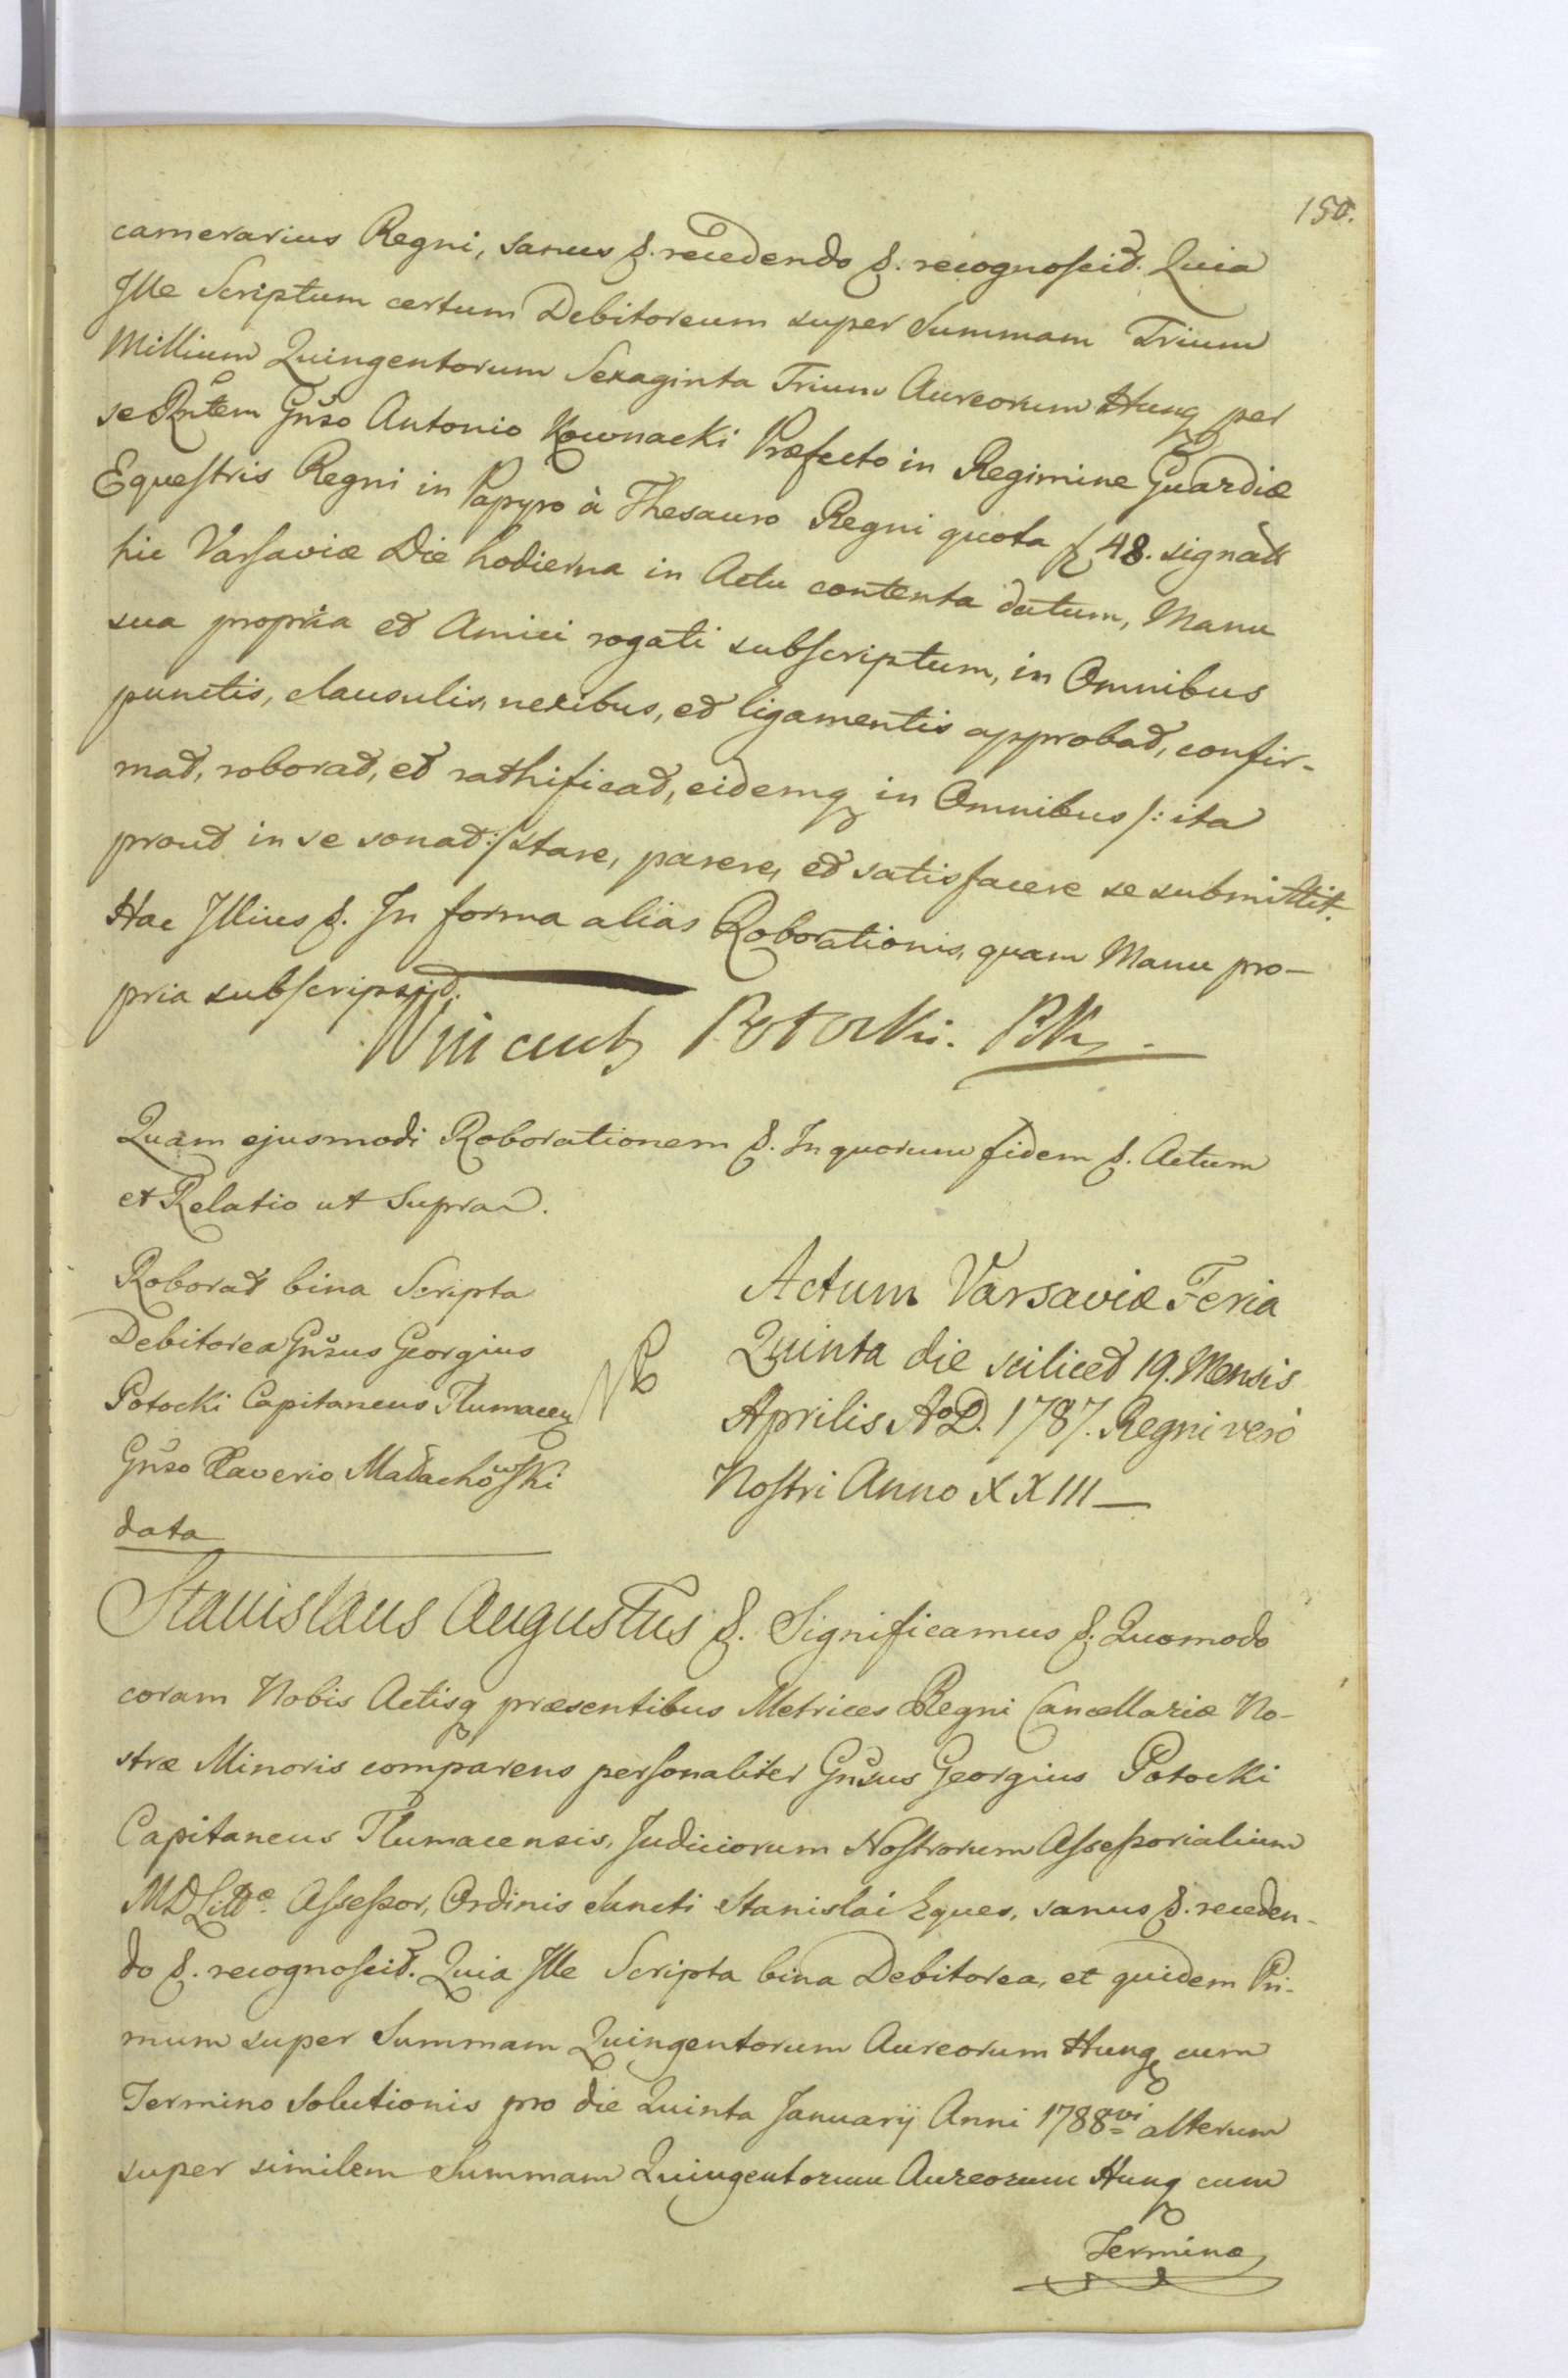 150.
camerarius Regni, sanus &. recedendo &. recognoscit. Quia
Ille Scriptum certum Debitoreum super Summam Trium
Millium Quingentorum Sexaginta Trium Aureorum Hung per
se Rntem Gnso Antonio Kownacki Præfecto in Regimine Guardiæ
Equestris Regni in Papyro à Thesauro Regni quota f 48. signatt
hic Varsaviæ Die hodierna in Actu contenta datum, Manu
sua propria et Amici rogati subscriptum, in Omnibus
punctis, clausulis, nexibus, et ligamentis approbat, confir-
mat, roborat, et rathificat, eidemq in Omnibus /: ita
prout in se sonat :/ stare, parere, et satisfacere se submittit.
Hac Illius &. In forma alias Roborationis, quam Manu pro-
pria subscripsit.
Wincenty Potocki. PKK.
Quam ejusmodi Roborationem &. In quorum fidem &. Actum
et Relatio ut Supra.
Roborat bina Scripta
Debitorea Gnsus Georgius
Potocki Capitaneus Tlumacen
Gnso Xaverio Małachowski
data
Actum Varsaviæ Feria
Quinta die scilicet 19. Mensis
Aprilis AoD. 1787. Regni vero
Nostri Anno XXIII —
Stanislaus Augustus &. Significamus &. Quomodo
coram Nobis Actisq præsentibus Metrices Regni Cancellariæ No-
stræ Minoris comparens personaliter Gnsus Georgius Potocki
Capitaneus Tlumacensis, Judiciorum Nostrorum Assessorialium
MDLittæ. Assessor, Ordinis Sancti Stanislai Eques, sanus &. receden-
do &. recognoscit. Quia Ille Scripta bina Debitorea, et quidem Pri-
mum super Summam Quingentorum Aureorum Hung cum
Termino Solutionis pro die Quinta Januarij Anni 1788vi alterum
super similem Summam Quingentorum Aureorum Hung cum
Termino